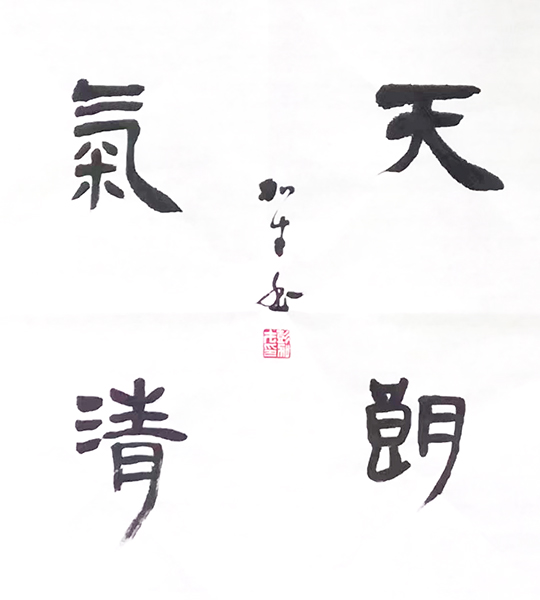 天朗
氣清
加生书